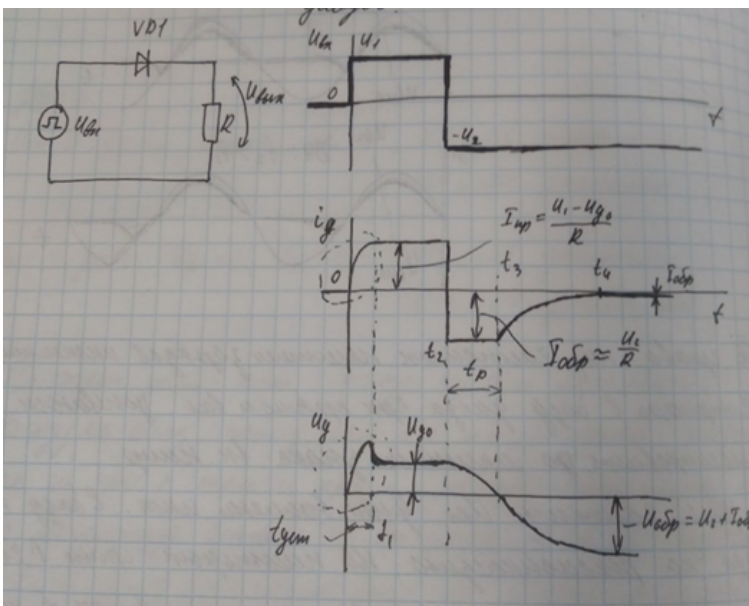 VD1
Uвх
R
Uвых
Uвх
U1
0
-U2
t
iд
0
Iпр = (U1 - Uд0)/R
t3
t4
Iобр
t
t2
tр
Iобр ≈ U2/R
Uд
Uд0
tуст
t1
- Uобр = U2 + Iоб